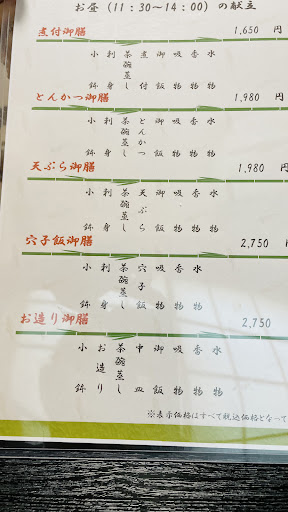 お昼(11:30~14:00)の献立
煮付御膳 1,650 円
小鉢 刺身 茶碗蒸し 煮付 御飯 吸物 香物 水物
とんかつ御膳 1,980 円
小鉢 刺身 茶碗蒸し とんかつ 御飯 吸物 香物 水物
天ぷら御膳 1,980 円
小鉢 刺身 茶碗蒸し 天ぷら 御飯 吸物 香物 水物
穴子飯御膳 2,750 円
小鉢 刺身 茶碗蒸し 穴子飯 吸物 香物 水物
お造り御膳 2,750
小鉢 お造り 茶碗蒸し 中皿 御飯 吸物 香物 水物
※表示価格はすべて税込価格となって